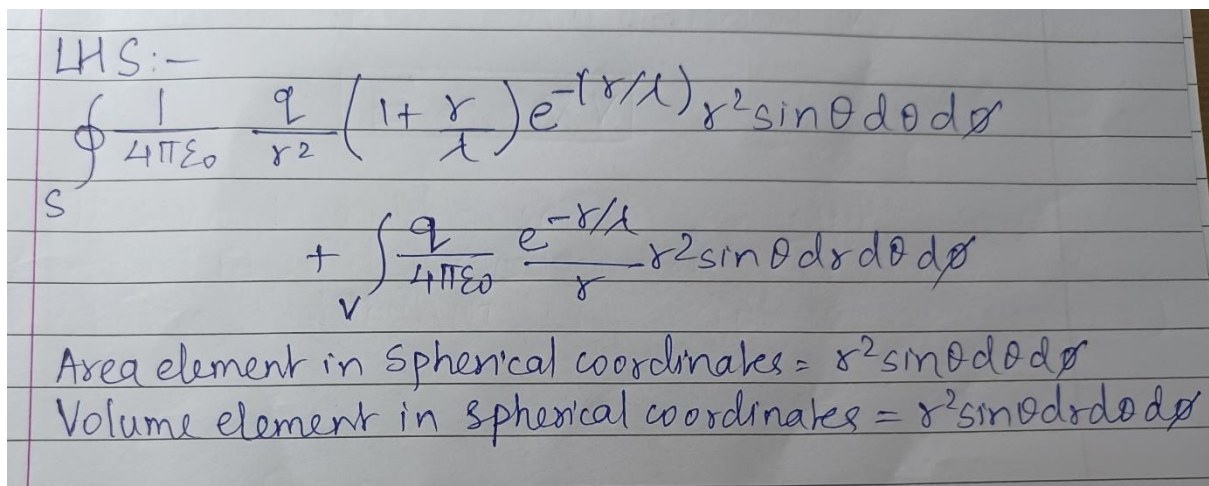 LHS:-
∮_S 1/(4πε₀) q/r² (1 + r/λ) e^-(r/λ) r² sinθ dθ dφ
+ ∫_V q/(4πε₀) e^-r/λ / r r² sinθ dr dθ dφ
Area element in Spherical coordinates = r² sinθ dθ dφ
Volume element in spherical coordinates = r² sinθ dr dθ dφ